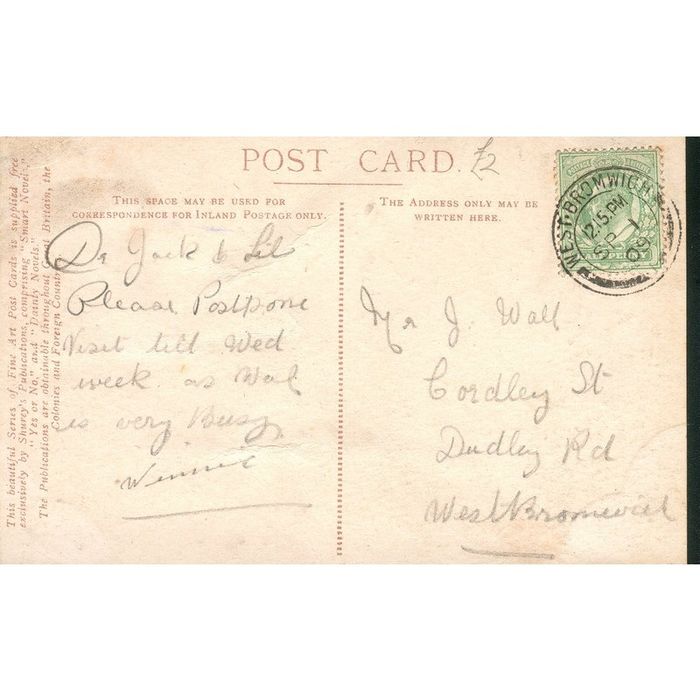 POST CARD.
£2
THIS SPACE MAY BE USED FOR
CORRESPONDENCE FOR INLAND POSTAGE ONLY.
THE ADDRESS ONLY MAY BE
WRITTEN HERE.
Dr Jack & Lil
Please Postpone
Visit till Wed
week as Wal
is very Busy
Winnie
Mr J. Wall
Cordley St
Dudley Rd
West Bromwich
WEST BROMWICH
12.15 PM
SP 1
09
This beautiful Series of Fine Art Post Cards is supplied free
exclusively by Shurey's Publications, comprising "Smart Novels,"
"Yes or No," and "Dainty Novels."
The Publications are obtainable throughout Great Britain, the
Colonies and Foreign Countries